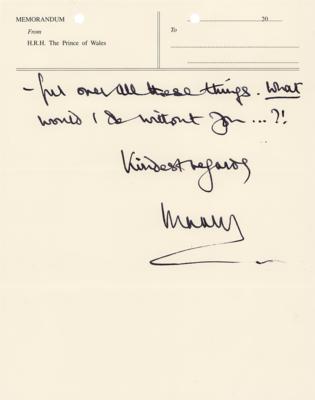 MEMORANDUM
From
H.R.H. The Prince of Wales
20
To
over all these things. What
would I do without you ...?!
Kindest regards